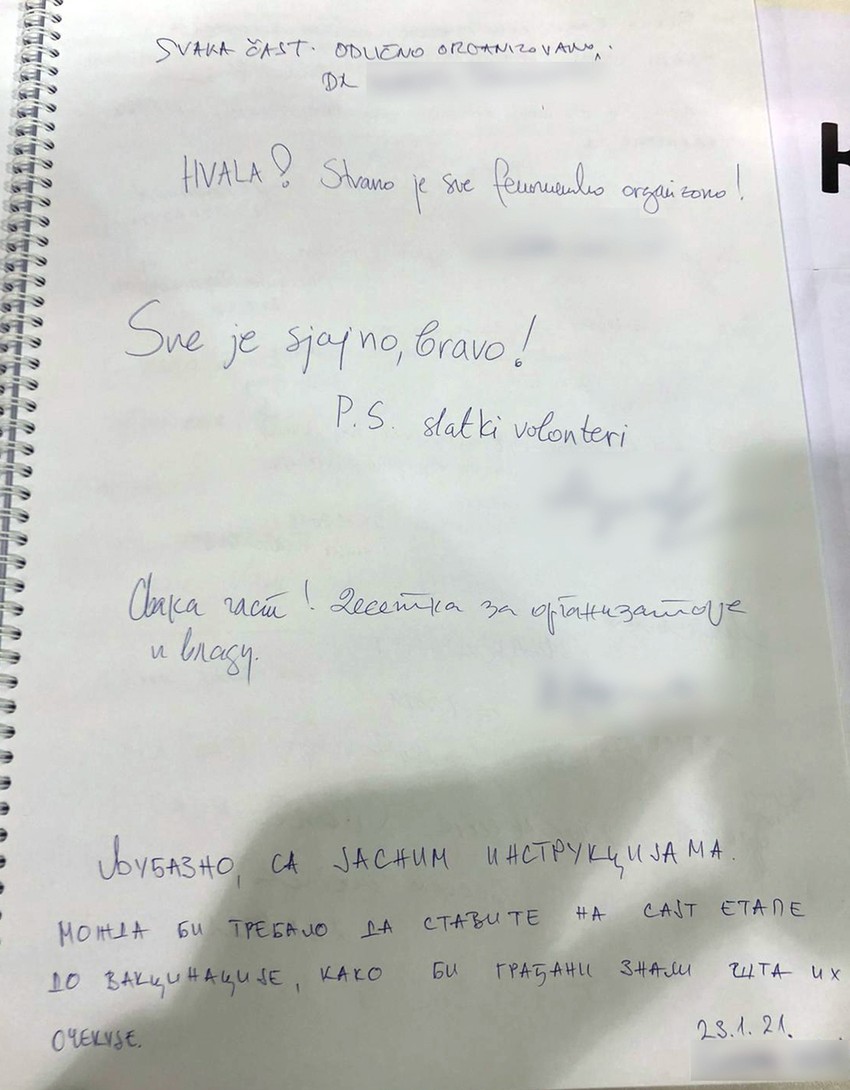 SVAKA ČAST. ODLIČNO ORGANIZOVANO,.
DR
HVALA! Stvarno je sve fenomenalno organizovano!
Sve je sjajno, bravo!
P.S. slatki volonteri
Свака част! Десетка за организаторе
и владу.
ЉУБАЗНО, СА ЈАСНИМ ИНСТРУКЦИЈАМА.
МОЖДА БИ ТРЕБАЛО ДА СТАВИТЕ НА САЈТ ЕТАПЕ
ДО ВАКЦИНАЦИЈЕ, КАКО БИ ГРАЂАНИ ЗНАЛИ ШТА ИХ
ОЧЕКУЈЕ.
23.1.21.